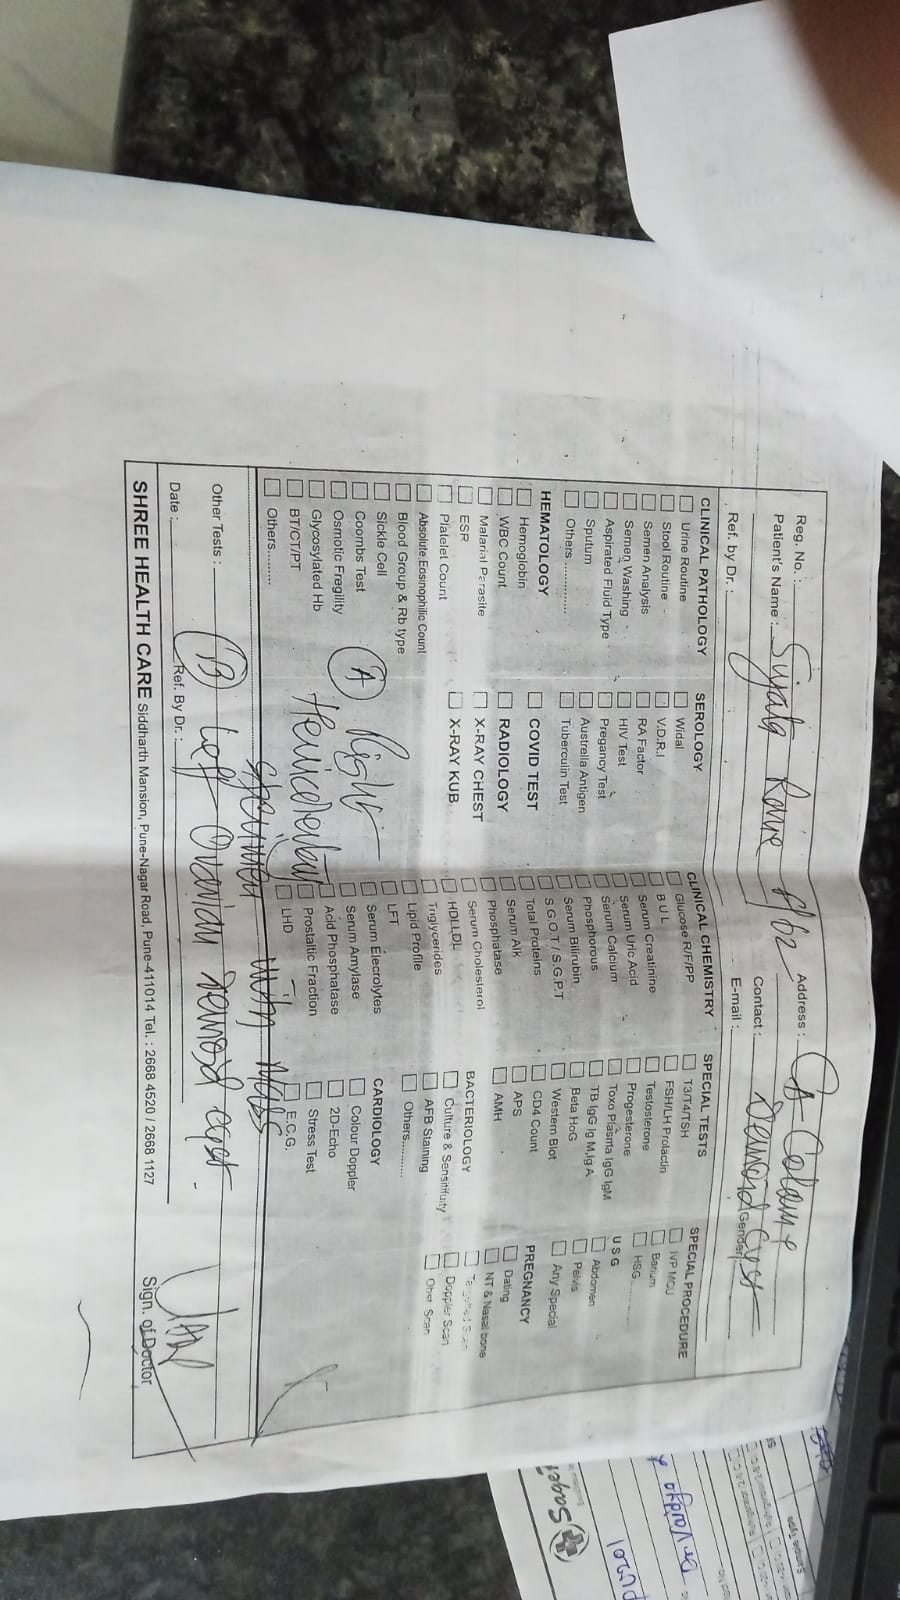 Reg. No. :
Patient's Name : Sujata Rane F/62 Address : Ca-Colon +
Contact : Dermoid Cyst
Ref. by Dr. : E-mail : Gender
CLINICAL PATHOLOGY
Urine Routine
Stool Routine
Semen Analysis
Semen Washing
Aspirated Fluid Type
Sputum
Others.............
HEMATOLOGY
Hemoglobin
WBC Count
Malarial Parasite
ESR
Platelet Count
Absolute Eosinophilic Count
Blood Group & Rb type
Sickle Cell
Coombs Test
Osmotic Fregility
Glycosylated Hb
BT/CT/PT
Others.........
SEROLOGY
Widal
V.D.R.I
RA Factor
HIV Test
Pregancy Test
Australia Antigen
Tuberculin Test
COVID TEST
RADIOLOGY
X-RAY CHEST
X-RAY KUB
CLINICAL CHEMISTRY
Glucose R/F/PP
B U L
Serum Creatinine
Serum Uric Acid
Serum Calcium
Phosphorous
Serum Bilirubin
S.G.O.T / S.G.P.T
Total Proteins
Serum Alk
Phosphatase
Serum Cholesterol
HDLLDL
Triglycerides
Lipid Profile
LFT
Serum Elecrolytes
Serum Amylase
Acid Phosphatase
Prostaltic Fraction
LHD
SPECIAL TESTS
T3/T4/TSH
FSH/LH Prolactin
Testosterone
Progesterone
Toxo Plasma IgG IgM
TB IgG Ig M,Ig A
Beta HoG
Western Blot
CD4 Count
APS
AMH
BACTERIOLOGY
Culture & Sensitifuity
AFB Staining
Others............
CARDIOLOGY
Colour Doppler
2D-Echo
Stress Test
E.C.G.
SPECIAL PROCEDURE
IVP MCU
Barium
HSG............
U S G
Abdomen
Pelvis
Any Special
PREGNANCY
Dating
NT & Nasal bone
Doppler Scan
Other Scan
(A) Right
Hemicolectomy
Specimen with Mass
Other Tests : (B) Left Ovarian Dermoid cyst.
Date : Ref. By Dr. : Sign. of Doctor
SHREE HEALTH CARE Siddharth Mansion, Pune-Nagar Road, Pune-411014 Tel. : 2668 4520 / 2668 1127